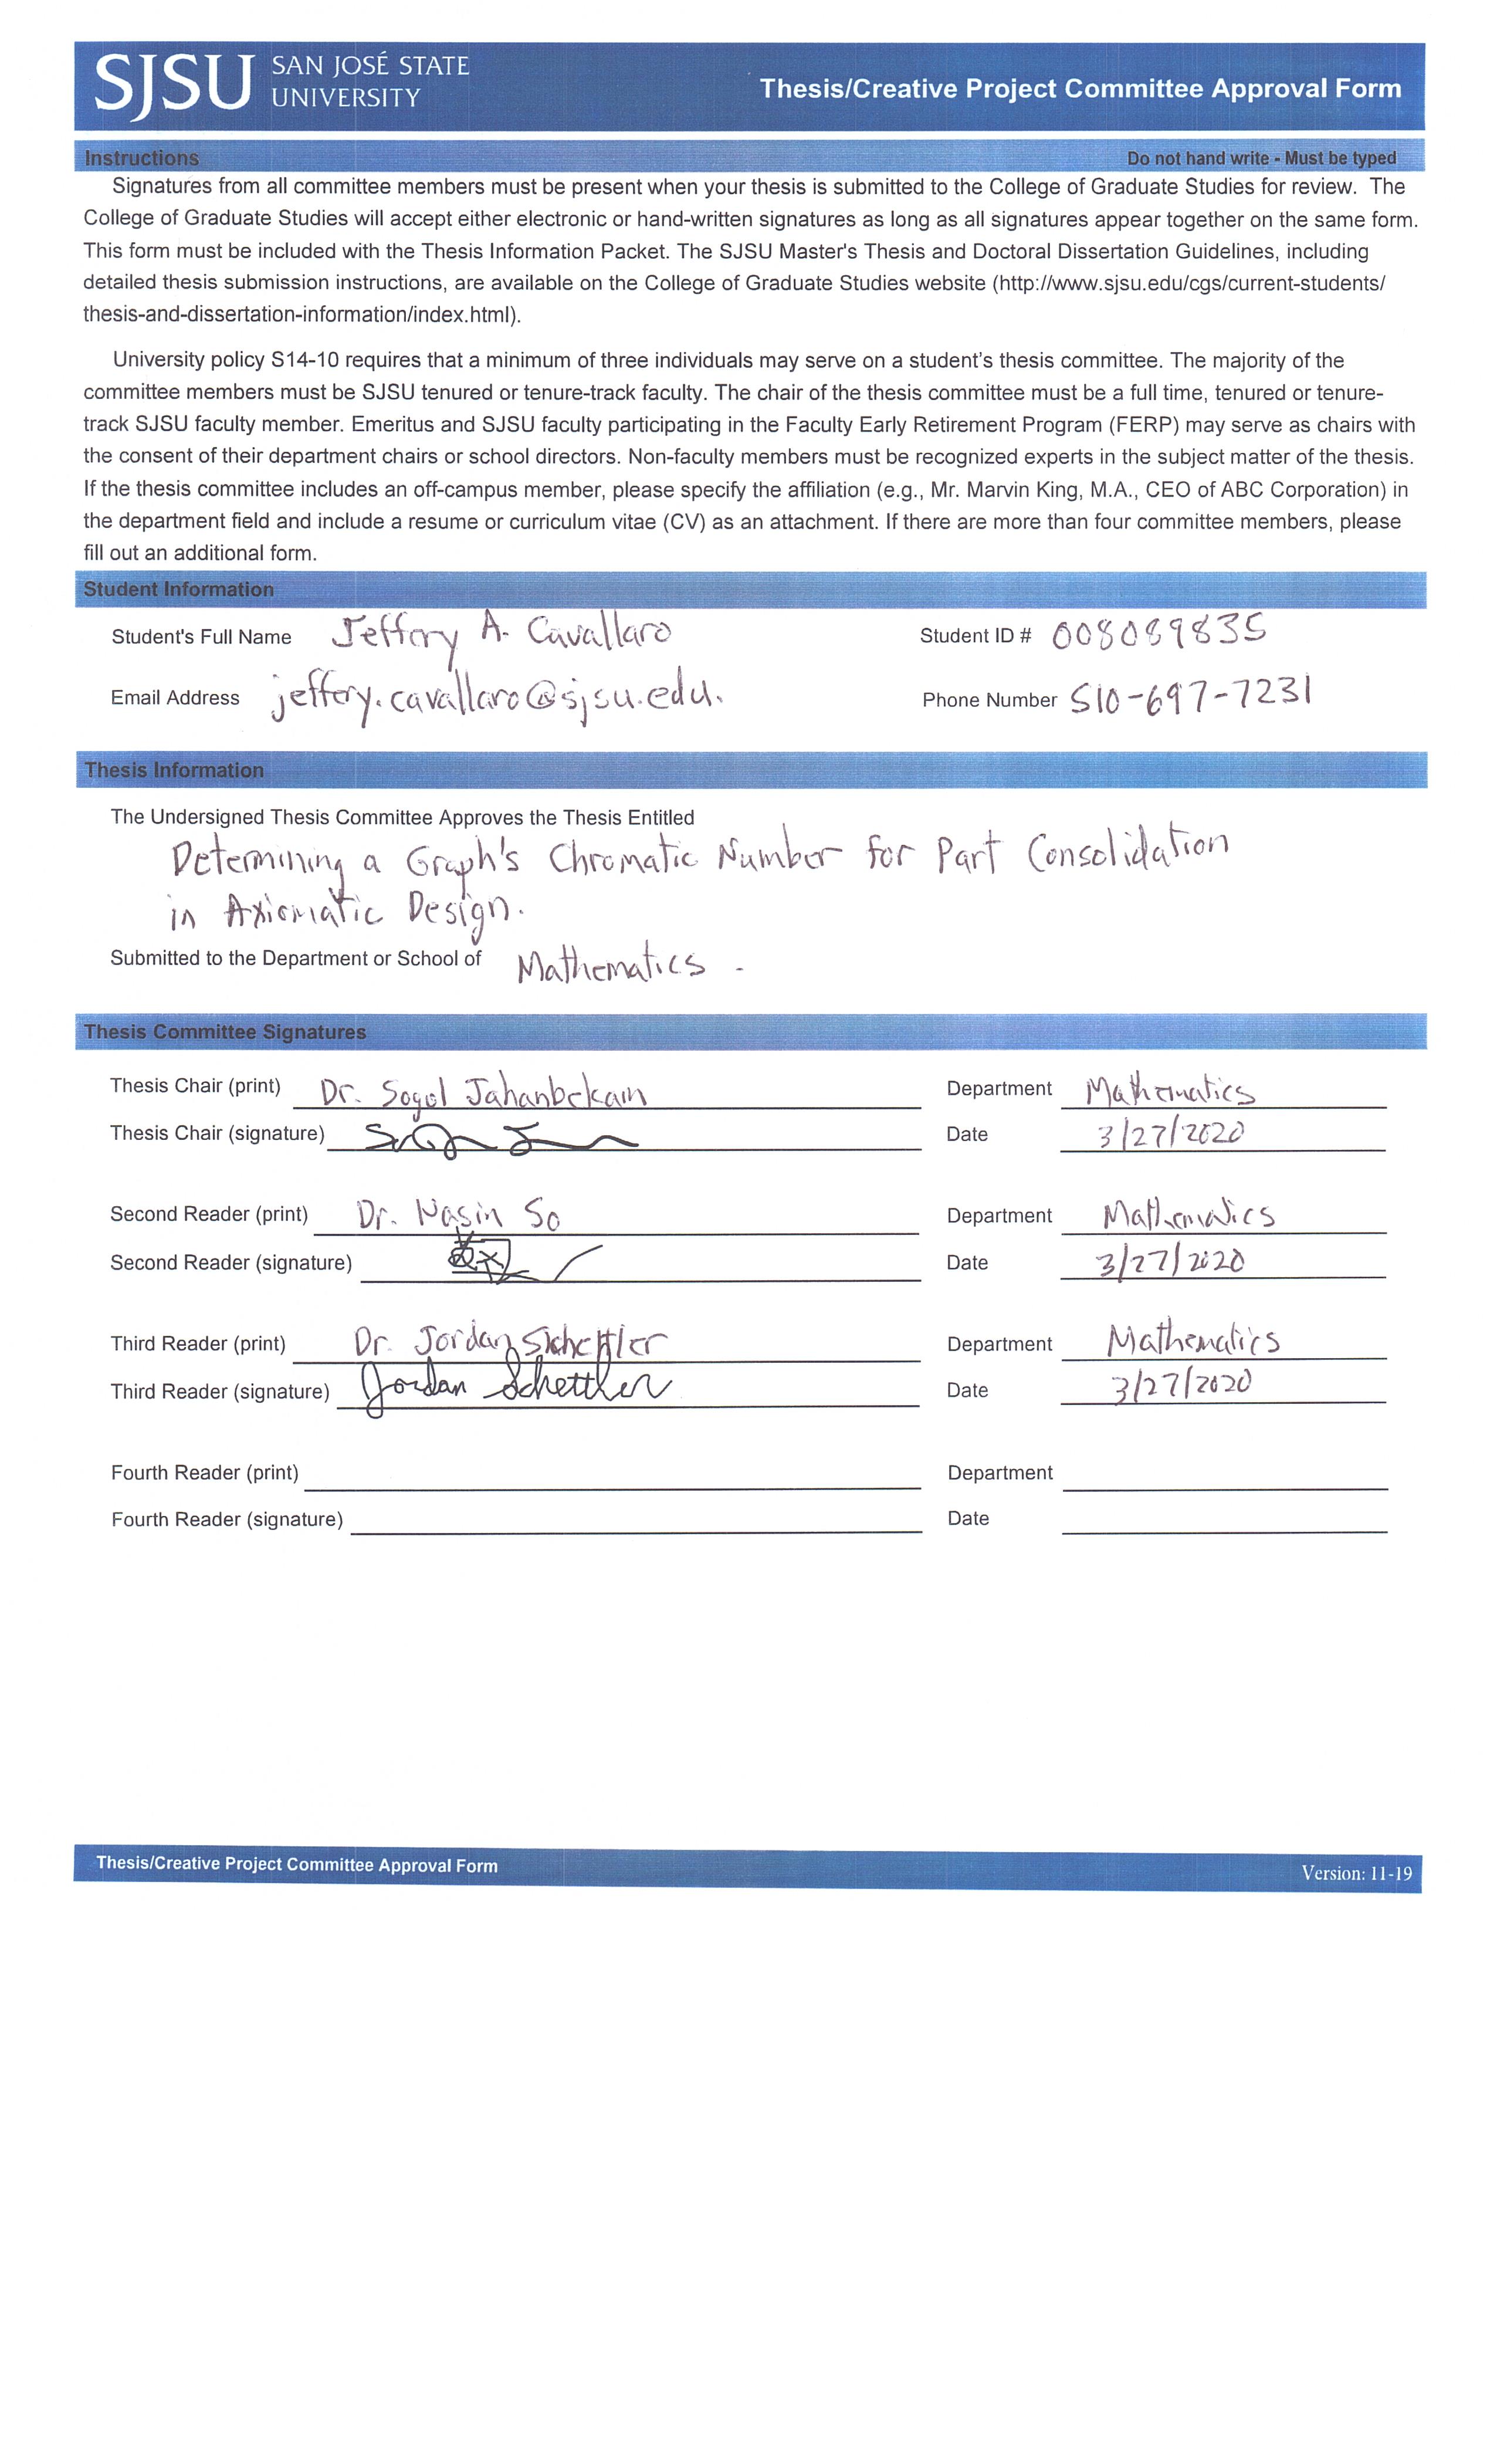 SJSU SAN JOSÉ STATE
UNIVERSITY
Thesis/Creative Project Committee Approval Form
Instructions Do not hand write - Must be typed
Signatures from all committee members must be present when your thesis is submitted to the College of Graduate Studies for review. The
College of Graduate Studies will accept either electronic or hand-written signatures as long as all signatures appear together on the same form.
This form must be included with the Thesis Information Packet. The SJSU Master's Thesis and Doctoral Dissertation Guidelines, including
detailed thesis submission instructions, are available on the College of Graduate Studies website (http://www.sjsu.edu/cgs/current-students/
thesis-and-dissertation-information/index.html).
University policy S14-10 requires that a minimum of three individuals may serve on a student's thesis committee. The majority of the
committee members must be SJSU tenured or tenure-track faculty. The chair of the thesis committee must be a full time, tenured or tenure-
track SJSU faculty member. Emeritus and SJSU faculty participating in the Faculty Early Retirement Program (FERP) may serve as chairs with
the consent of their department chairs or school directors. Non-faculty members must be recognized experts in the subject matter of the thesis.
If the thesis committee includes an off-campus member, please specify the affiliation (e.g., Mr. Marvin King, M.A., CEO of ABC Corporation) in
the department field and include a resume or curriculum vitae (CV) as an attachment. If there are more than four committee members, please
fill out an additional form.
Student Information
Student's Full Name Jeffery A. Cavallaro Student ID # 008089835
Email Address jeffery.cavallaro@sjsu.edu. Phone Number 510-697-7231
Thesis Information
The Undersigned Thesis Committee Approves the Thesis Entitled
Determining a Graph's Chromatic Number for Part Consolidation
in Axiomatic Design.
Submitted to the Department or School of Mathematics -
Thesis Committee Signatures
Thesis Chair (print) Dr. Sogol Jahanbekam Department Mathematics
Thesis Chair (signature) Date 3/27/2020
Second Reader (print) Dr. Wasin So Department Mathematics
Second Reader (signature) Date 3/27/2020
Third Reader (print) Dr. Jordan Schettler Department Mathematics
Third Reader (signature) Jordan Schettler Date 3/27/2020
Fourth Reader (print) Department
Fourth Reader (signature) Date
Thesis/Creative Project Committee Approval Form Version: 11-19